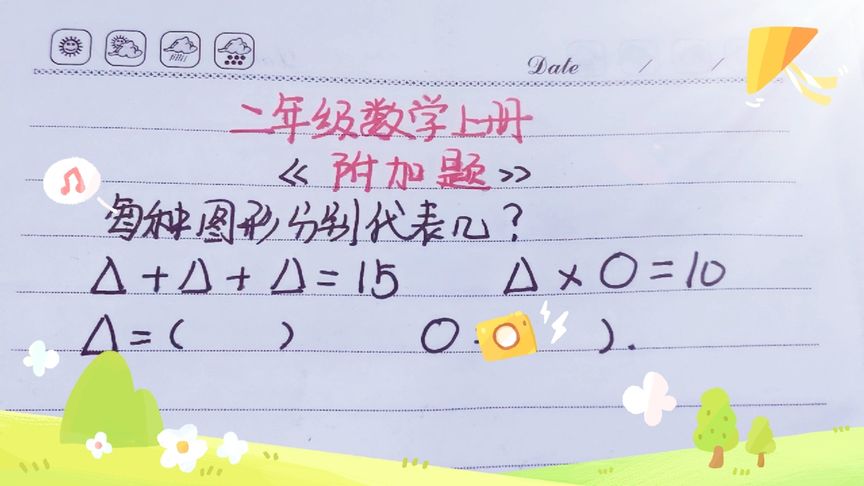 Date / /
二年级数学上册
《附加题》
每种图形分别代表几？
△+△+△=15 △×○=10
△=( ) ○ ).